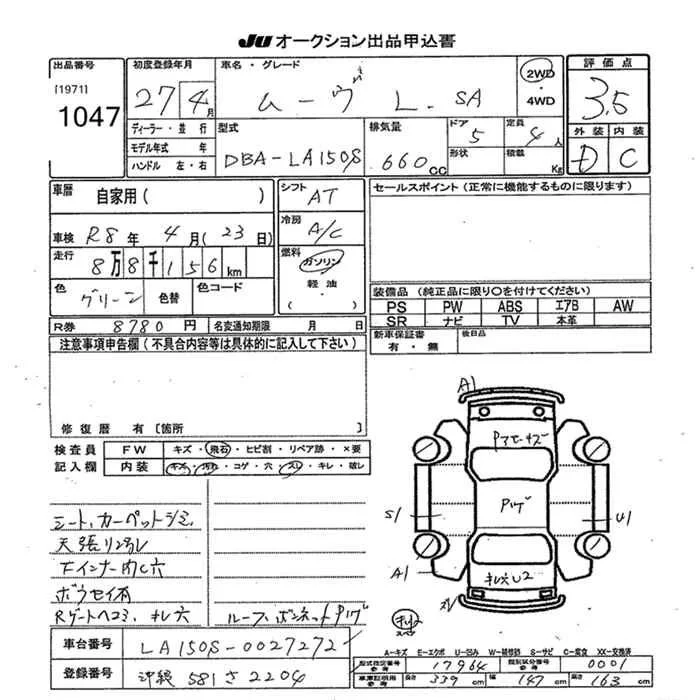 JU オークション出品申込書
出品番号
[1971]
1047
初度登録年月
27 4月
ディーラー・並行
モデル年式 年
ハンドル 左・右
車名・グレード
ムーヴ L SA
2WD
・
4WD
型式
DBA-LA150S
排気量
660cc
ドア
5
形状
定員
4人
積載
Kg
評価点
3.5
外装 内装
D C
車暦
自家用( )
車検 R8年 4月(23日)
走行
8万8千156km
色
グリーン
色替
色コード
シフト
AT
冷房
A/C
燃料
ガソリン
軽油
・
( )
R券 8780円 名変通知期限 月 日
セールスポイント(正常に機能するものに限ります)
装備品(純正品に限り〇を付けてください)
PS PW ABS エアB AW
SR ナビ TV 本革
新車保証書
有・無
後日品
注意事項申告欄(不具合内容等は具体的に記入して下さい)
修復暦 有〔箇所 〕
検査員
記入欄
FW キズ・飛石・ヒビ割・リペア跡・×要
内装 キズ・汚れ・コゲ・穴・スレ・キレ・破レ
シート、カーペットシミ
天張リ
Fインナー 穴
ボウセイ有
Rゲートヘコミ、キレ穴
ルーフ、ボンネットPハゲ
A1
Pハゲ
S1
U1
A1
キレ穴U2
車台番号 LA150S-0027272
登録番号 沖縄 581 さ 2204
A-キズ E-エクボ U-凹み W-補修跡 S-サビ C-腐食 XX-交換済
型式指定番号
参考
17964
類別区分番号
参考
0001
車庫証明用
参考
長さ 339cm 幅 147cm 高さ 163cm